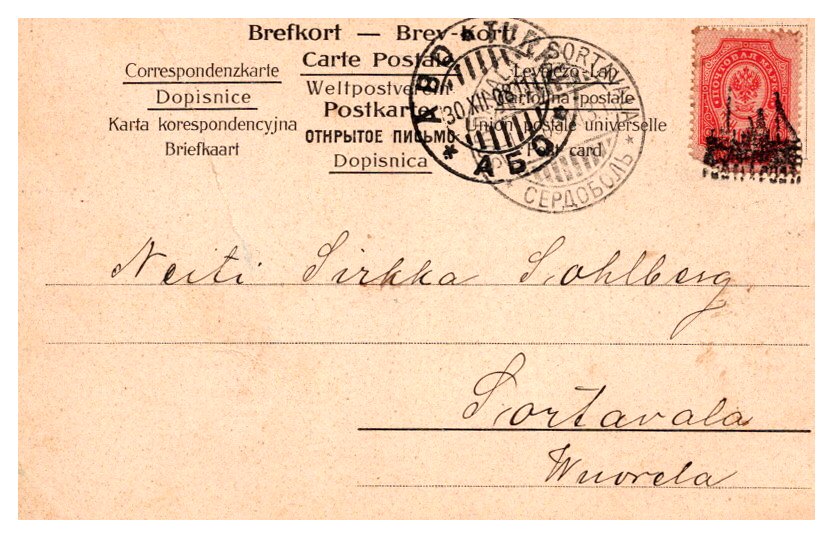 Brefkort — Brev-Kort
Carte Postale
Correspondenzkarte
Levelező-Lap
Weltpostverein
Dopisnice
Cartolina postale
Postkarte
Karta korespondencyjna
ОТКРЫТОЕ ПИСЬМО
Union postale universelle
Briefkaart
Post card
Dopisnica
ÅBO * TURKU * АБО *
30.XII.08
SORTAVALA * СЕРДОБОЛЬ *
ПОЧТОВАЯ МАРКА
Neiti Sirkka Sohlberg
Sortavala
Wuorela